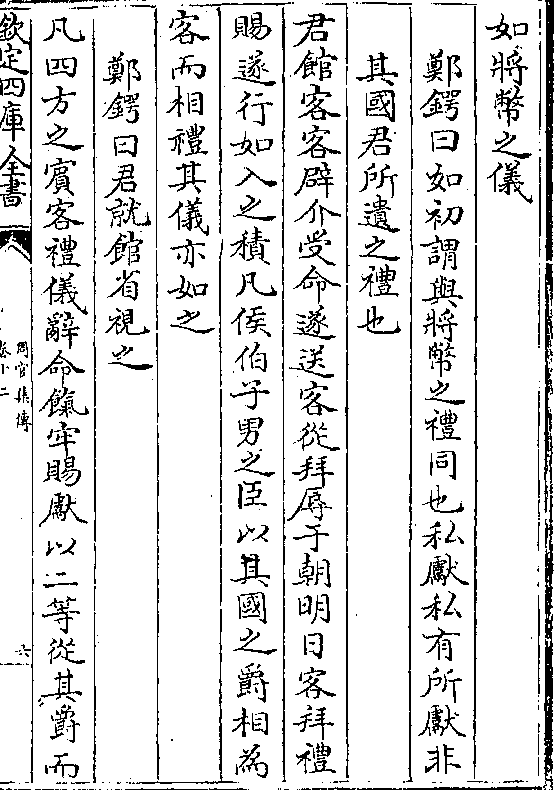 如將幣之儀
鄭鍔曰如初謂與將幣之禮同也私獻私有所獻非
其國君所遺之禮也
君館客客辟介受命遂送客從拜辱于朝明日客拜禮
賜遂行如入之積凡侯伯子男之臣以其國之爵相為
客而相禮其儀亦如之
鄭鍔曰君就館省視之
凡四方之賓客禮儀辭命餼牢賜獻以二等從其爵而
欽定四庫全書
周官集傳
卷十二
六